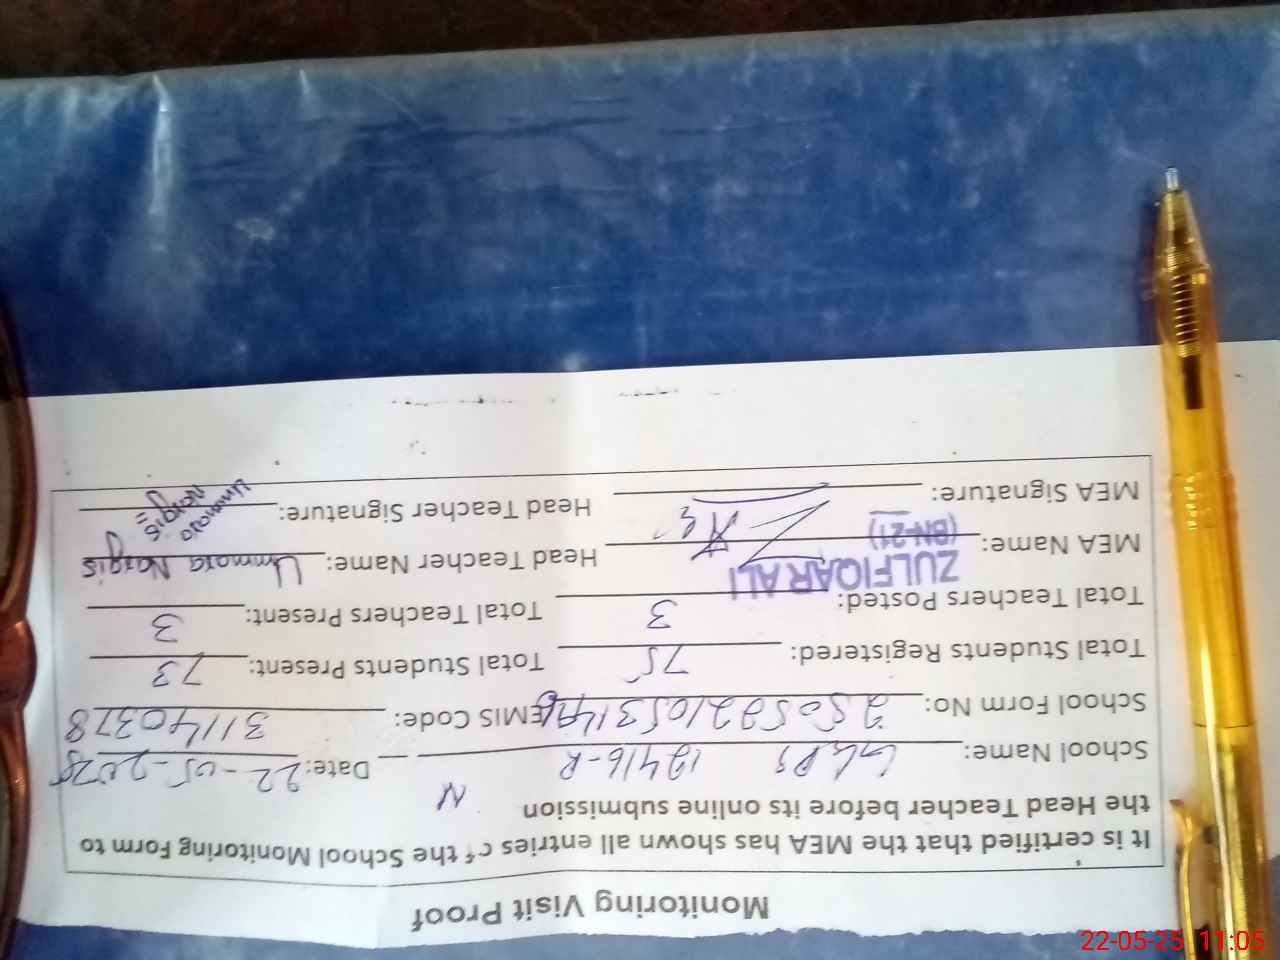 Monitoring Visit Proof
It is certified that the MEA has shown all entries of the School Monitoring Form to
the Head Teacher before its online submission N
School Name: GGPS 124/6-R Date: 22-05-2025
School Form No: EMIS Code: 31140378
Total Students Registered: 75 Total Students Present: 73
Total Teachers Posted: 3 Total Teachers Present: 3
ZULFIQAR ALI
(BN-21)
MEA Name: Head Teacher Name: Ummara Nargis
MEA Signature: Head Teacher Signature: Ummara
Nargis
22-05-25 11:05